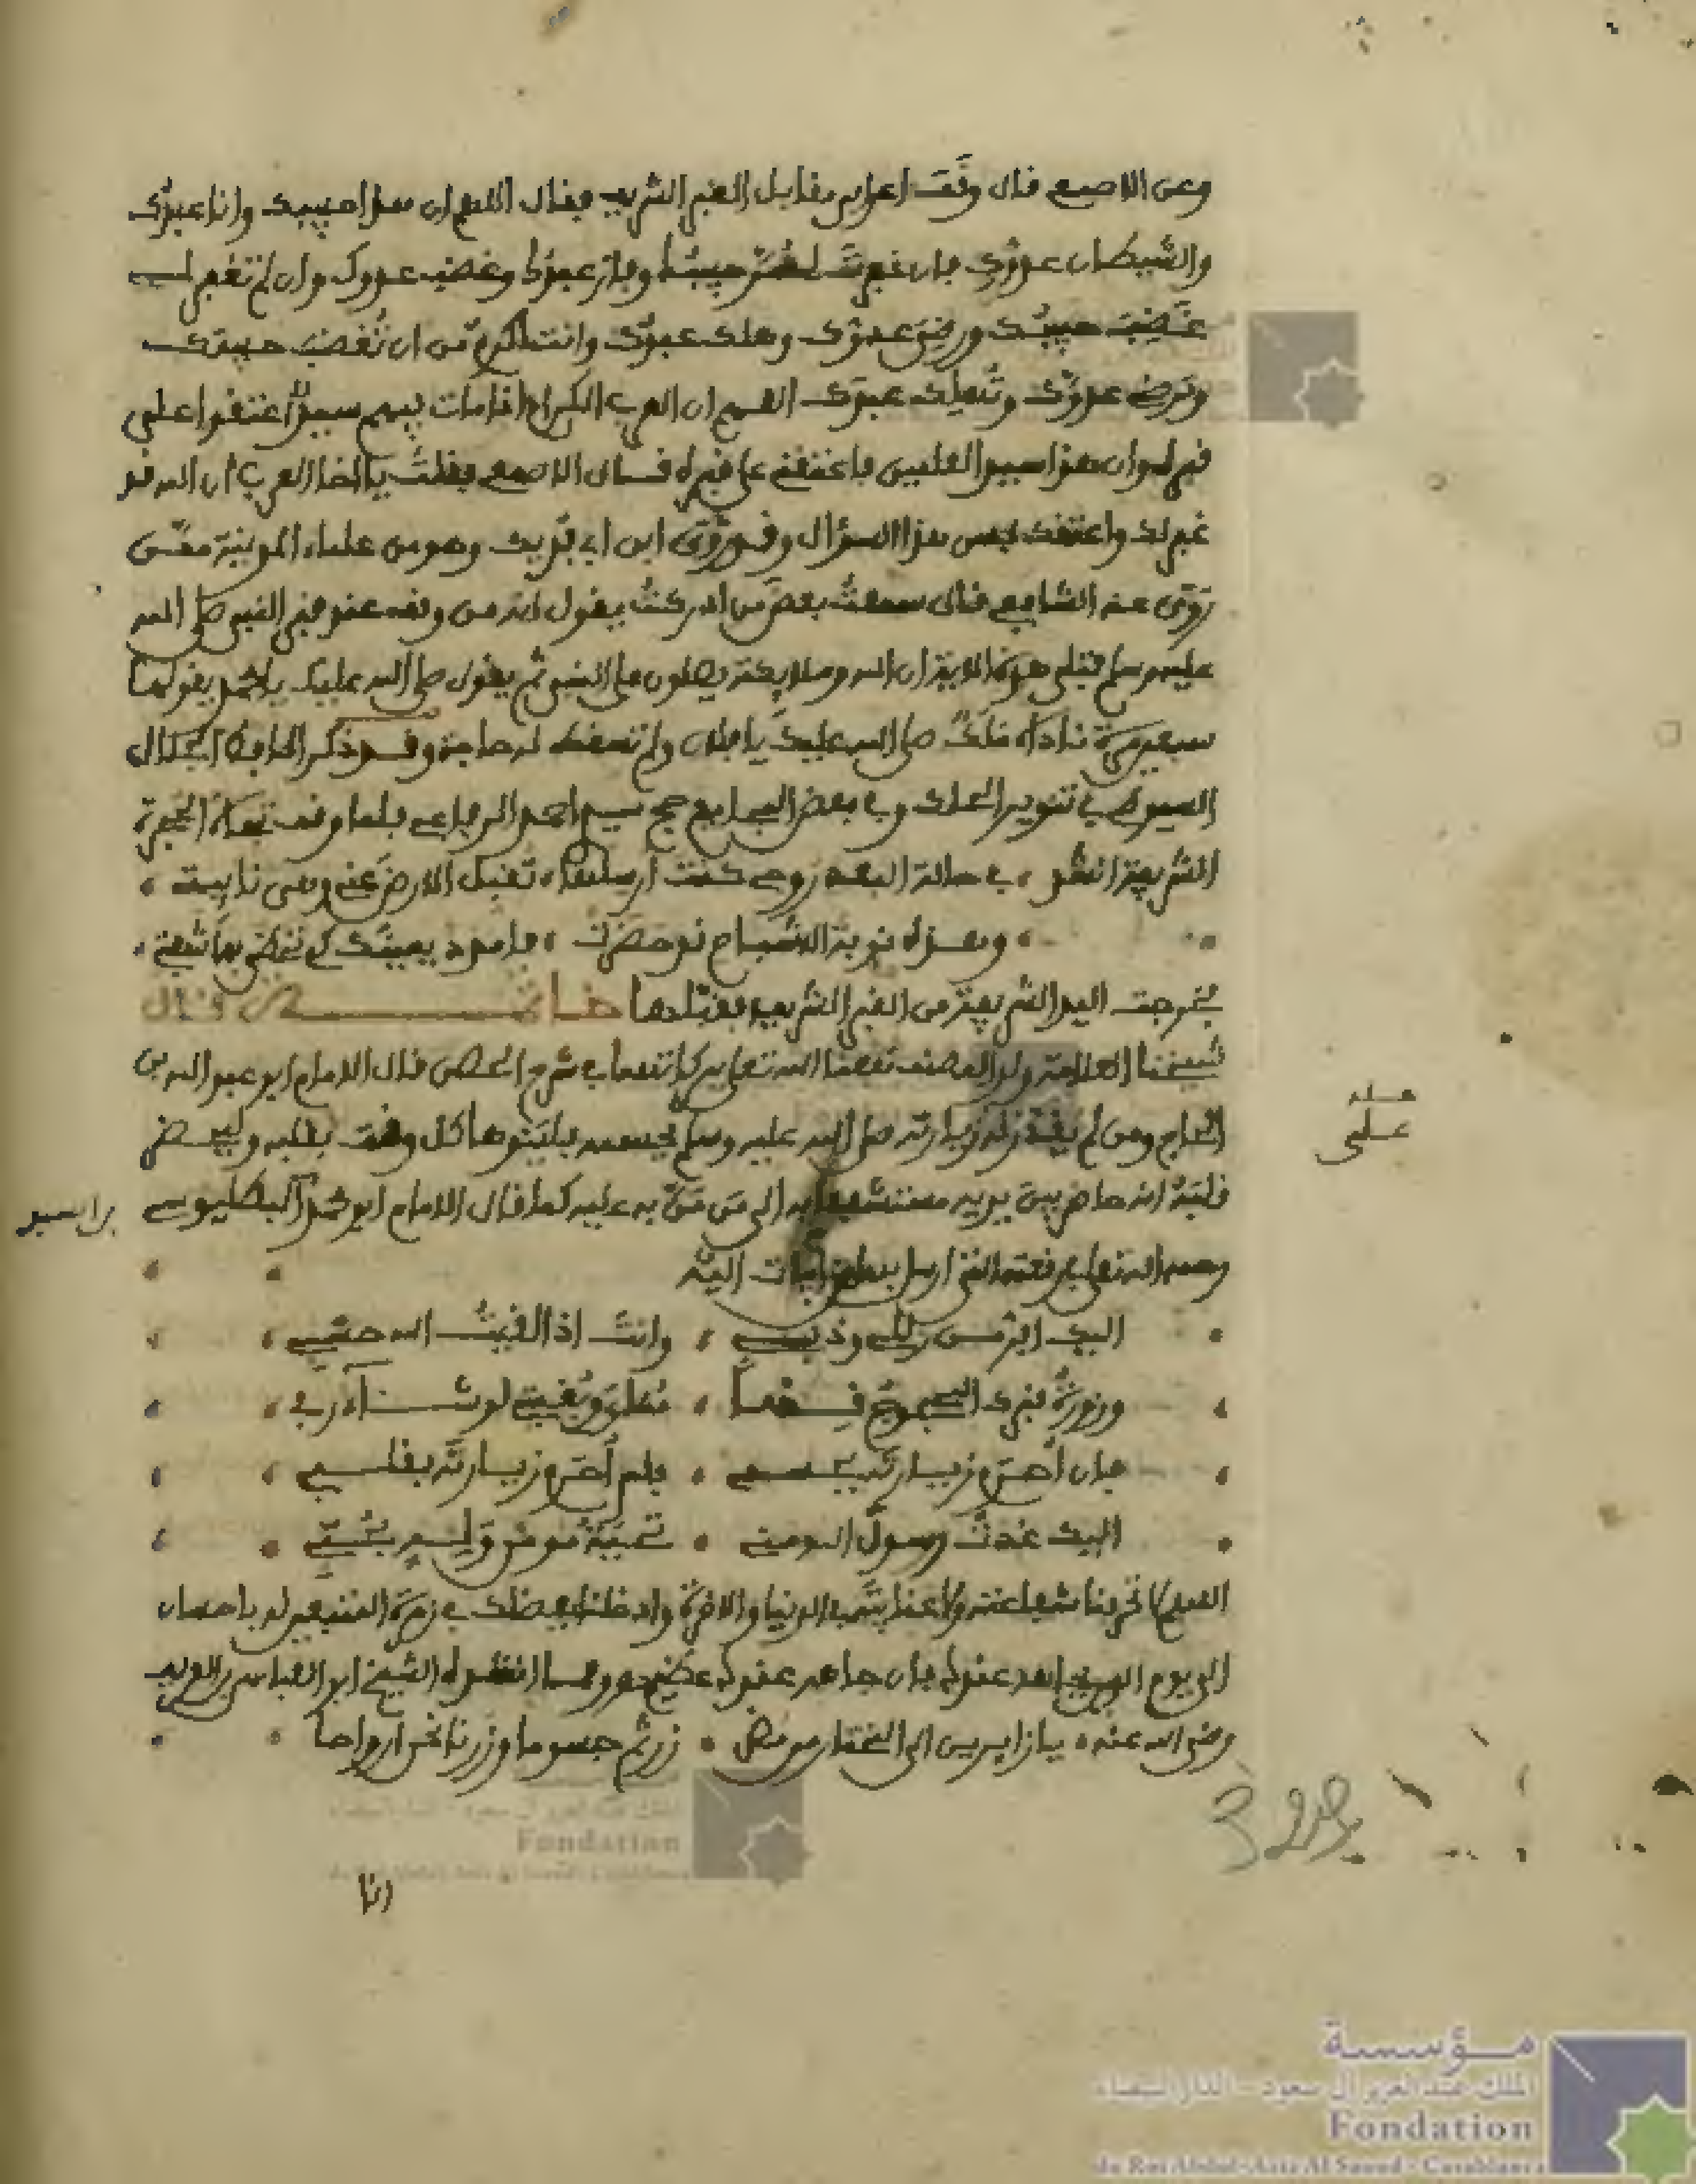 وعن الاصمعي قال وقف اعرابي مقابل القبر الشريف فقال اللهم ان هذا حبيبك وانا عبدك
والشيطان عدوك فان غفرت لي سُرّ حبيبك وفاز عبدك وغضب عدوك وان لم تغفر لي
غضب حبيبك ورضي عدوك وهلك عبدك وانت اكرم من ان تُغضب حبيبك
وترضي عدوك وتهلك عبدك اللهم ان العرب الكرام اذا مات فيهم سيد اعتقوا على
قبره وان هذا سيد العلمين فاعتقني على قبره قال الاصمعي فقلت يا اخا العرب ان الله قد
غفر لك واعتقك بحسن هذا السؤال وقد روى ابن ابي فديك وهو من علماء المدينة ممن
روى عنه الشافعي قال سمعت بعض من ادركت يقول انه من وقف عند قبر النبي صلى الله
عليه وسلم فتلى هذه الاية ان الله وملايكته يصلون على النبي ثم يقول صلى الله عليك يا محمد يقولها
سبعين مرة ناداه ملك صلى الله عليك يا فلان ولم تسقط له حاجة وقد ذكر الحافظ الجلال
السيوطي في تنوير الحلك وفي بعض المجاميع حج سيدي احمد الرفاعي فلما وقف تجاه الحجرة
الشريفة انشد ، في حالة البعد روحي كنت ارسلها ، تقبل الارض عني وهي نايبتي ،
، وهذه نوبة الاشباح قد حضرت ، فامدد يمينك كي تحظى بها شفتي ،
فخرجت اليد الشريفة من القبر الشريف فقبلها قال
شيخنا العلامة ولد المصنف نفعنا الله تعالى ببركاتهما في شرح الحصن قال الامام ابو عبد الله بن
الحاج ومن لم يقدر له زيارته صلى الله عليه وسلم بجسمه فلينوها كل وقت بقلبه وليحضر
علي
قلبه انه حاضر بين يديه مستشفعا به الى من منّ به عليه كما قال الامام ابو محمد البطليوسي
بن السيد
رحمه الله تعالى في رقعته التي ارسل بها من ابيات اليه
اليك افر من زللي وذنبي ، وانت اذا لقيت الله حسبي
وزورة قبرك المحجوج قدما ، مناي وبغيتي لو شاء ربي
فان احرم زيارته بجسمي ، فلم احرم زيارته بقلبي
اليك غدت رسول الله مني ، تحية مومن دنف محب
اللهم لا تحرمنا شفاعته ولا عنايته في الدنيا والاخرة وادخلنا بفضلك في زمرة المتبعين له باحسان
الى يوم الدين بجاهه عندك فان جاهه عندك عظيم ومما انشده الشيخ ابو العباس بن العريف
رضي الله عنه ، يا زايرين الى المختار من مضر ، زرتم جسوما وزرنا نحن ارواحا
انا
مؤسسة
الملك عبد العزيز آل سعود - الدار البيضاء
Fondation
du Roi Abdul-Aziz Al Saoud - Casablanca